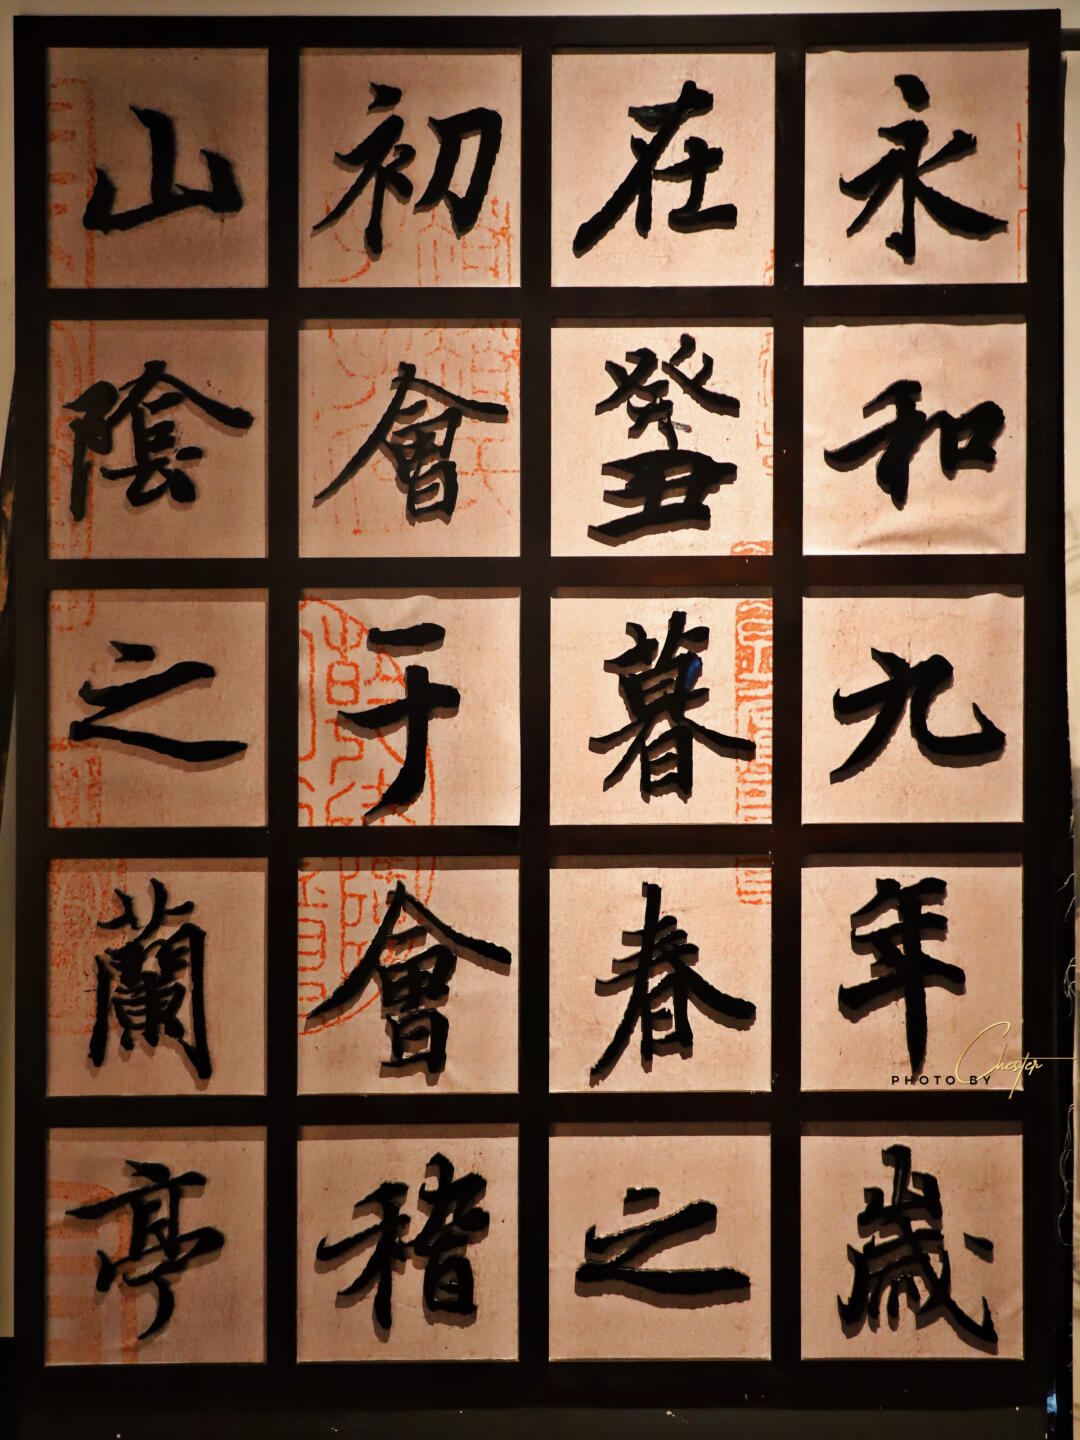 永和九年歲
在癸丑暮春之
初會于會稽
山陰之蘭亭
PHOTO BY Chester